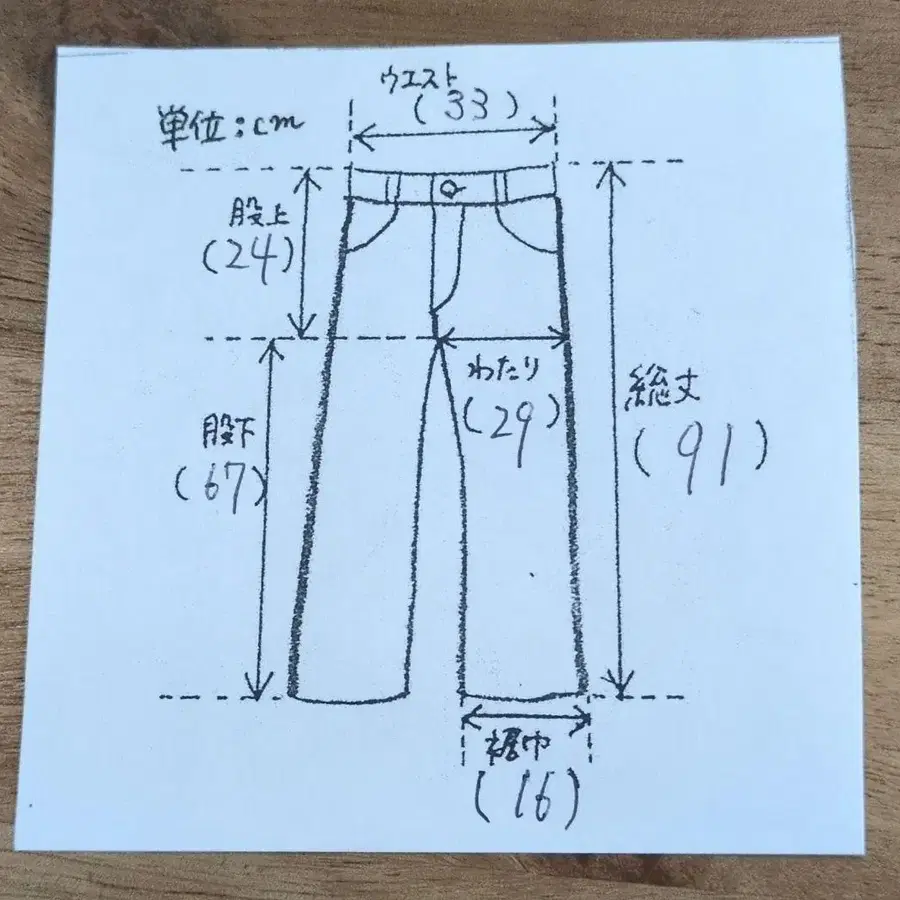 ウエスト
(33)
単位:cm
股上
(24)
わたり
(29)
総丈
(91)
股下
(67)
裾巾
(16)